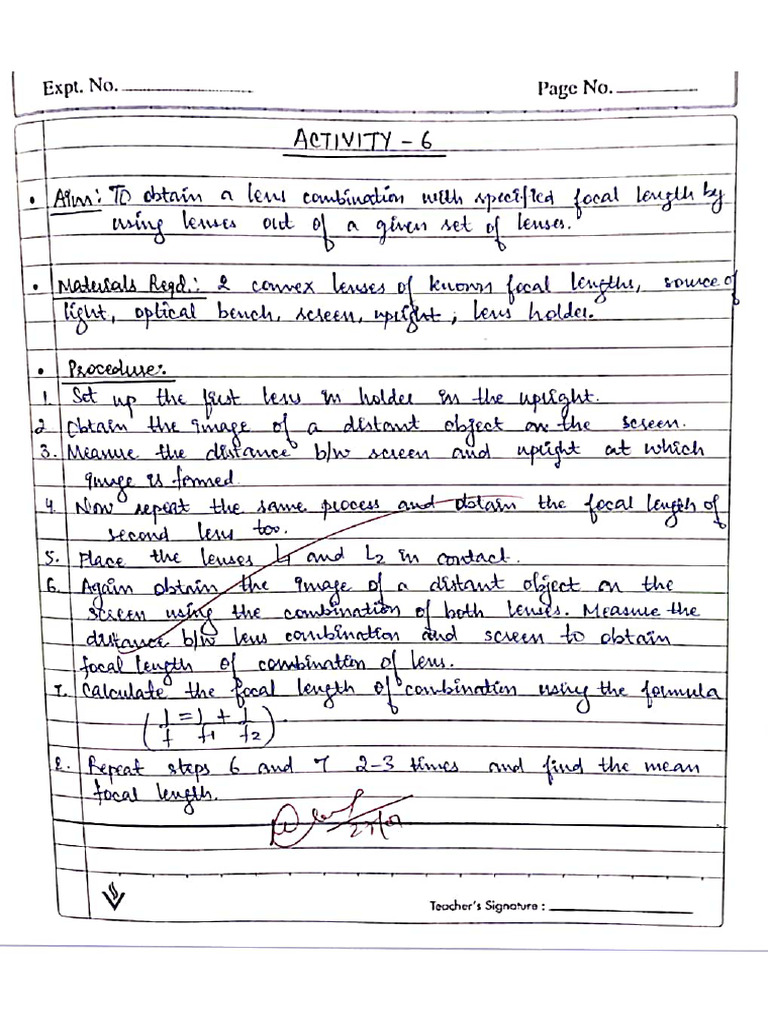 Expt. No. Page No.
ACTIVITY - 6
• Aim: To obtain a lens combination with specified focal length by
using lenses out of a given set of lenses.
• Materials Reqd.: 2 convex lenses of known focal lengths, source of
light, optical bench, screen, upright, lens holder.
• Procedure:
1. Set up the first lens in holder in the upright.
2 Obtain the image of a distant object on the screen.
3. Measure the distance b/w screen and upright at which
image is formed.
4. Now repeat the same process and obtain the focal length of
second lens too.
5. Place the lenses L1 and L2 in contact.
6. Again obtain the image of a distant object on the
screen using the combination of both lenses. Measure the
distance b/w lens combination and screen to obtain
focal length of combination of lens.
7. Calculate the focal length of combination using the formula
(1/f = 1/f1 + 1/f2).
8. Repeat steps 6 and 7 2-3 times and find the mean
focal length.
Teacher's Signature :